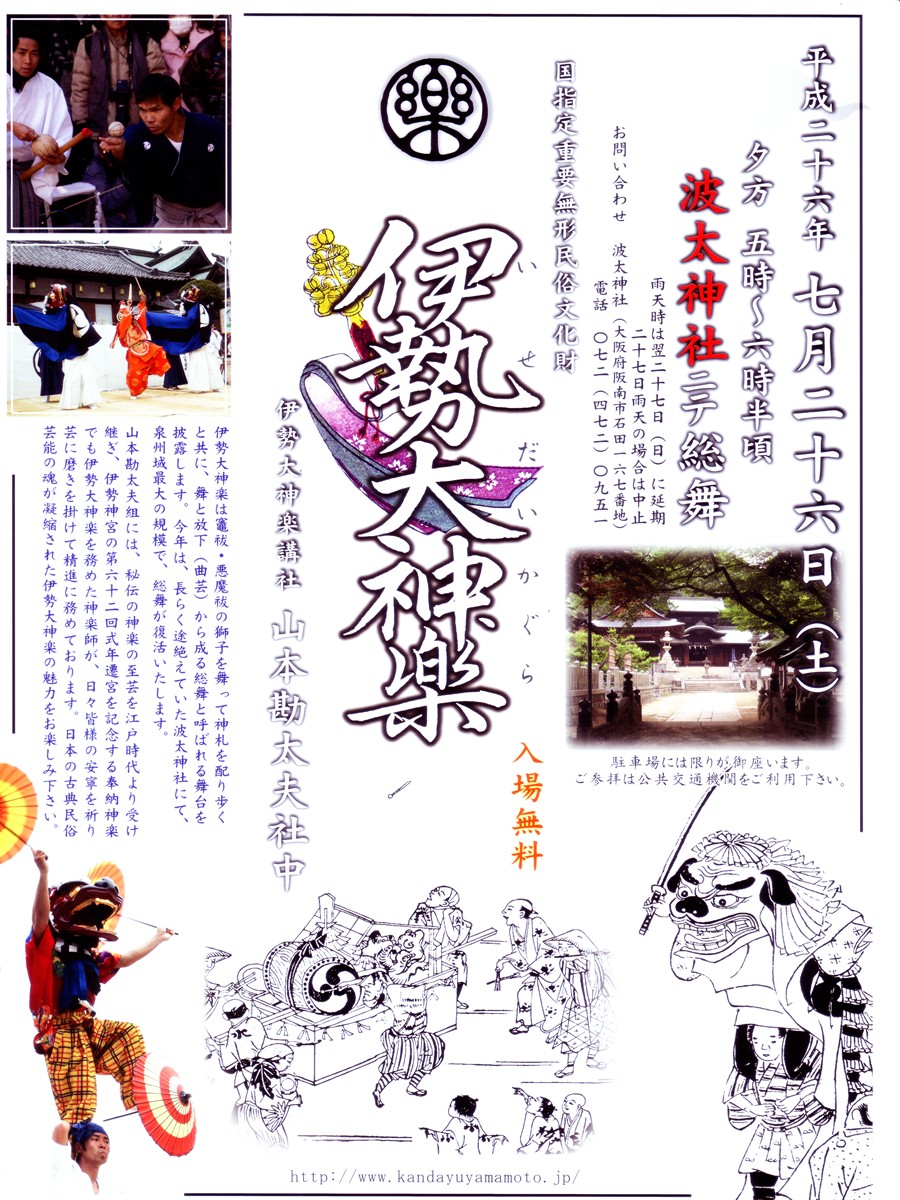 平成二十六年 七月二十六日（土）
夕方 五時～六時半頃
波太神社ニテ総舞
雨天時は翌二十七日（日）に延期
二十七日雨天の場合は中止
お問い合わせ 波太神社（大阪府阪南市石田一六七番地）
電話 〇七二（四七二）〇九五一
国指定重要無形民俗文化財
樂
伊勢大神楽
いせだいかぐら
伊勢大神楽講社 山本勘太夫社中
入場無料
駐車場には限りが御座います。
ご参拝は公共交通機関をご利用下さい。
伊勢大神楽は竈祓・悪魔祓の獅子を舞って神札を配り歩く
と共に、舞と放下（曲芸）から成る総舞と呼ばれる舞台を
披露します。今年は、長らく途絶えていた波太神社にて、
泉州域最大の規模で、総舞が復活いたします。
山本勘太夫組には、秘伝の神楽の至芸を江戸時代より受け
継ぎ、伊勢神宮の第六十二回式年遷宮を記念する奉納神楽
でも伊勢大神楽を務めた神楽師が、日々皆様の安寧を祈り
芸に磨きを掛けて精進に務めております。日本の古典民俗
芸能の魂が凝縮された伊勢大神楽の魅力をお楽しみ下さい。
http://www.kandayuyamamoto.jp/